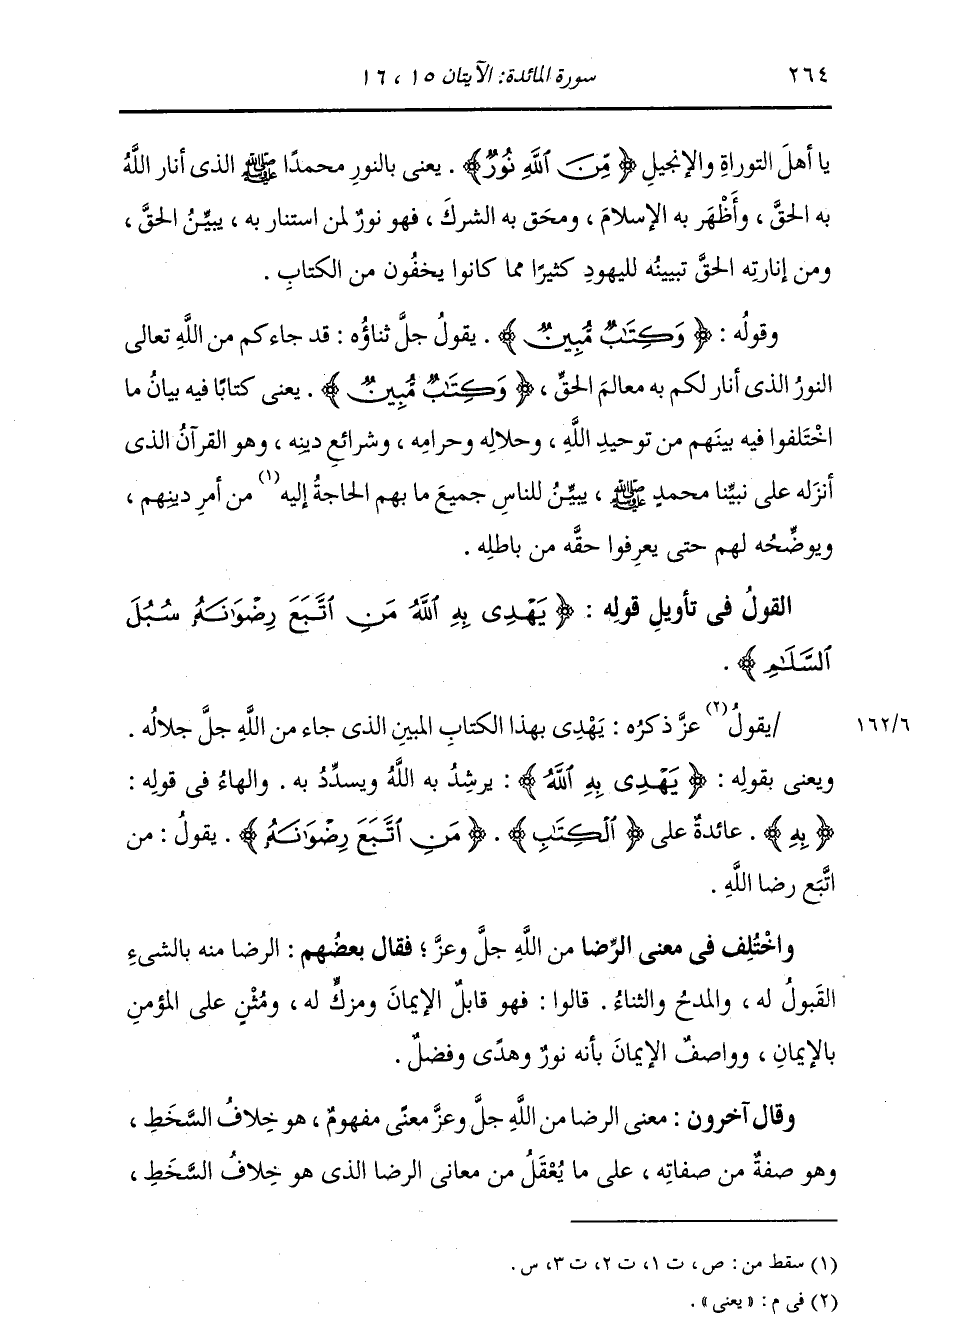 ٢٦٤ سورة المائدة: الآيتان ١٥ ، ١٦
يا أهلَ التوراةِ والإنجيلِ ﴿ مِّنَ ٱللَّهِ نُورٌ﴾ . يعنى بالنورِ محمدًا ﷺ الذى أنار اللَّهُ
به الحقَّ ، وأَظْهَر به الإسلامَ ، ومحَق به الشركَ ، فهو نورٌ لمن استنار به ، يبيِّنُ الحقَّ ،
ومن إنارتِه الحقَّ تبيينُه لليهودِ كثيرًا مما كانوا يخفُون من الكتابِ .
وقولُه : ﴿ وَكِتَٰبٌ مُّبِينٌ ﴾ . يقولُ جلَّ ثناؤُه : قد جاءكم من اللَّهِ تعالى
النورُ الذى أنار لكم به معالمَ الحقِّ ، ﴿ وَكِتَٰبٌ مُّبِينٌ ﴾ . يعنى كتابًا فيه بيانُ ما
اخْتَلفوا فيه بينَهم من توحيدِ اللَّهِ ، وحلالِه وحرامِه ، وشرائعِ دينِه ، وهو القرآنُ الذى
أنزَله على نبيِّنا محمدٍ ﷺ ، يبيِّنُ للناسِ جميعَ ما بهم الحاجةُ إليه(١) من أمرِ دينِهم ،
ويوضِّحُه لهم حتى يعرِفوا حقَّه من باطلِه .
القولُ فى تأويلِ قولِه : ﴿ يَهْدِى بِهِ ٱللَّهُ مَنِ ٱتَّبَعَ رِضْوَٰنَهُۥ سُبُلَ
ٱلسَّلَٰمِ ﴾ .
/يقولُ(٢) عزَّ ذكرُه : يَهْدِى بهذا الكتابِ المبينِ الذى جاء من اللَّهِ جلَّ جلالُه . ١٦٢/٦
ويعنى بقولِه : ﴿ يَهْدِى بِهِ ٱللَّهُ ﴾ : يرشِدُ به اللَّهُ ويسدِّدُ به . والهاءُ فى قولِه :
﴿ بِهِ ﴾ . عائدةٌ على ﴿ ٱلْكِتَٰبِ ﴾ . ﴿ مَنِ ٱتَّبَعَ رِضْوَٰنَهُۥ ﴾ . يقولُ : من
اتَّبَع رضا اللَّهِ .
واخْتُلِف فى معنى الرِّضا من اللَّهِ جلَّ وعزَّ ؛ فقال بعضُهم : الرضا منه بالشىءِ
القَبولُ له ، والمدحُ والثناءُ . قالوا : فهو قابلٌ الإيمانَ ومزكٍّ له ، ومُثْنٍ على المؤمنِ
بالإيمانِ ، وواصفٌ الإيمانَ بأنه نورٌ وهدًى وفضلٌ .
وقال آخرون : معنى الرضا من اللَّهِ جلَّ وعزَّ معنًى مفهومٌ ، هو خِلافُ السَّخَطِ ،
وهو صفةٌ من صفاتِه ، على ما يُعْقَلُ من معانى الرضا الذى هو خِلافُ السَّخَطِ ،
(١) سقط من : ص ، ت ١، ت ٢، ت ٣، س .
(٢) فى م : « يعنى » .